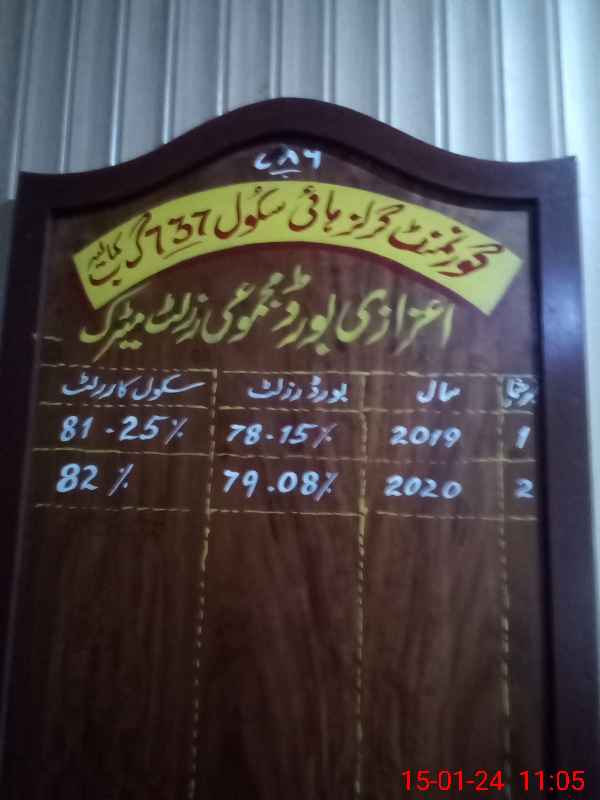 ۷۸۶
گورنمنٹ گرلز ہائی سکول 737 گ ب کمالیہ
اعزازی بورڈ مجموعی رزلٹ میٹرک
سال بورڈ رزلٹ سکول کا رزلٹ
1 2019 78.15% 81.25%
2 2020 79.08% 82%
15-01-24 11:05